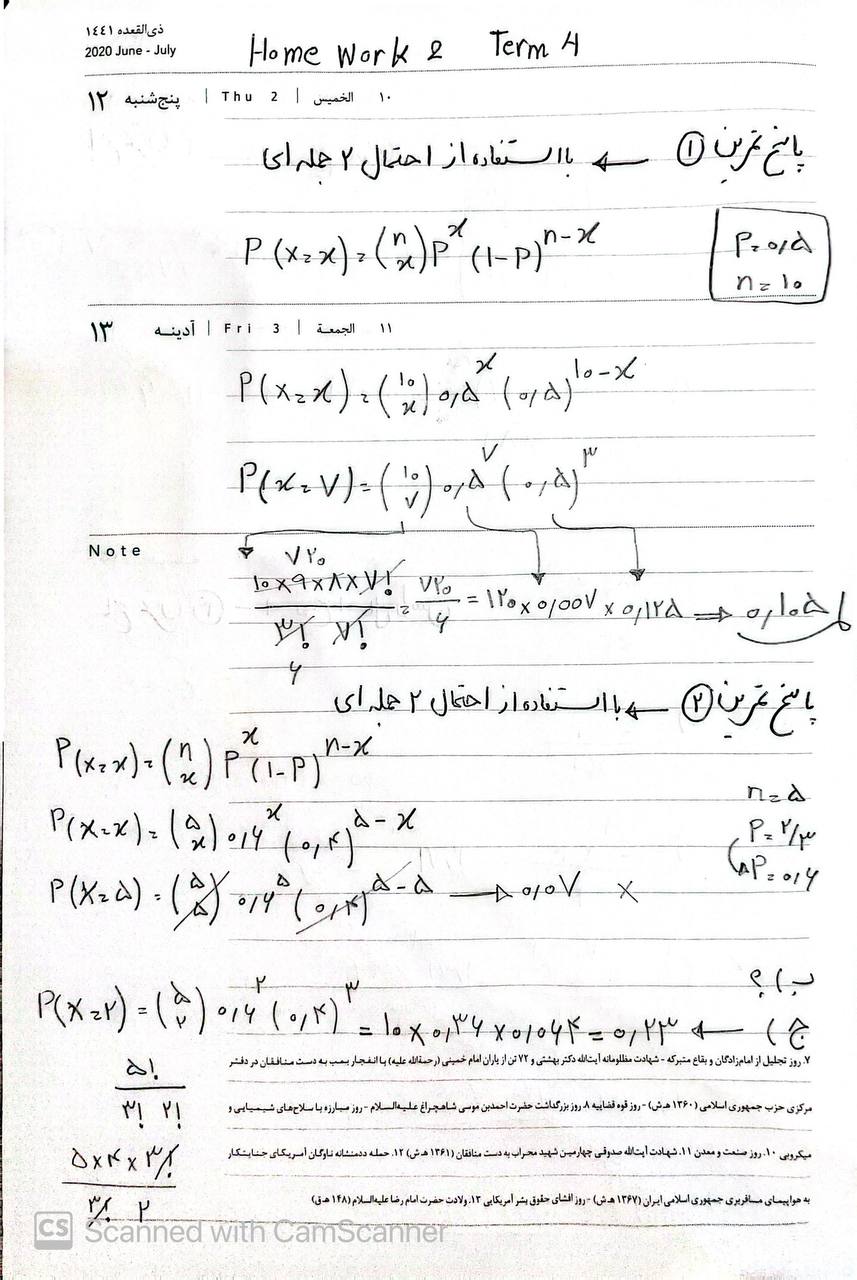 ذی‌القعده ١٤٤١
2020 June - July
Home Work 2 Term 4
۱۲ پنج‌شنبه | Thu 2 | الخميس ١٠
پاسخ تمرین ① ← با استفاده از احتمال ۲ جمله ای
P(x=x)=(n x)P^x (1-P)^n-x
P=۰٫۵
n=۱۰
۱۳ آدینـه | Fri 3 | الجمعة ١١
P(x=x)=(۱۰ x)۰٫۵^x (۰٫۵)^۱۰-x
P(x=۷)=(۱۰ ۷)۰٫۵^۷ (۰٫۵)^۳
Note
۷۲۰
۱۰×۹×۸×۷! / ۳! ۷! = ۷۲۰/۶ = ۱۲۰×۰٫۰۰۷×۰٫۱۲۵ ⇒ ۰٫۱۰۵
۶
پاسخ تمرین ② ← با استفاده از احتمال ۲ جمله ای
P(x=x)=(n x)P^x (1-P)^n-x
n=۵
P(x=x)=(۵ x)۰٫۶^x (۰٫۴)^۵-x
P=۲/۳
P=۰٫۶
P(x=۵)=(۵ ۵)۰٫۶^۵ (۰٫۴)^۵-۵ → ۰٫۰۷ ×
ب) ؟
ج) ← P(x=۲)=(۵ ۲)۰٫۶^۲ (۰٫۴)^۳ =۱۰×۰٫۳۶×۰٫۰۶۴=۰٫۲۳
۵! / ۳! ۲!
۵×۴×۳! / ۳! ۲
۷. روز تجلیل از امام‌زادگان و بقاع متبرکه - شهادت مظلومانه آیت‌الله دکتر بهشتی و ۷۲ تن از یاران امام خمینی (رحمة‌الله علیه) با انفجار بمب به دست منافقان در دفتر
مرکزی حزب جمهوری اسلامی (۱۳۶۰ ه‍.ش) - روز قوه قضاییه ۸. روز بزرگداشت حضرت احمدبن موسی شاهچراغ علیه‌السلام - روز مبارزه با سلاح‌های شیمیایی و
میکروبی ۱۰. روز صنعت و معدن ۱۱. شهادت آیت‌الله صدوقی چهارمین شهید محراب به دست منافقان (۱۳۶۱ ه‍.ش) ۱۲. حمله ددمنشانه ناوگان آمریکای جنایتکار
به هواپیمای مسافربری جمهوری اسلامی ایران (۱۳۶۷ ه‍.ش) - روز افشای حقوق بشر آمریکایی ۱۳. ولادت حضرت امام رضا علیه‌السلام (۱۴۸ ه‍.ق)
CS Scanned with CamScanner